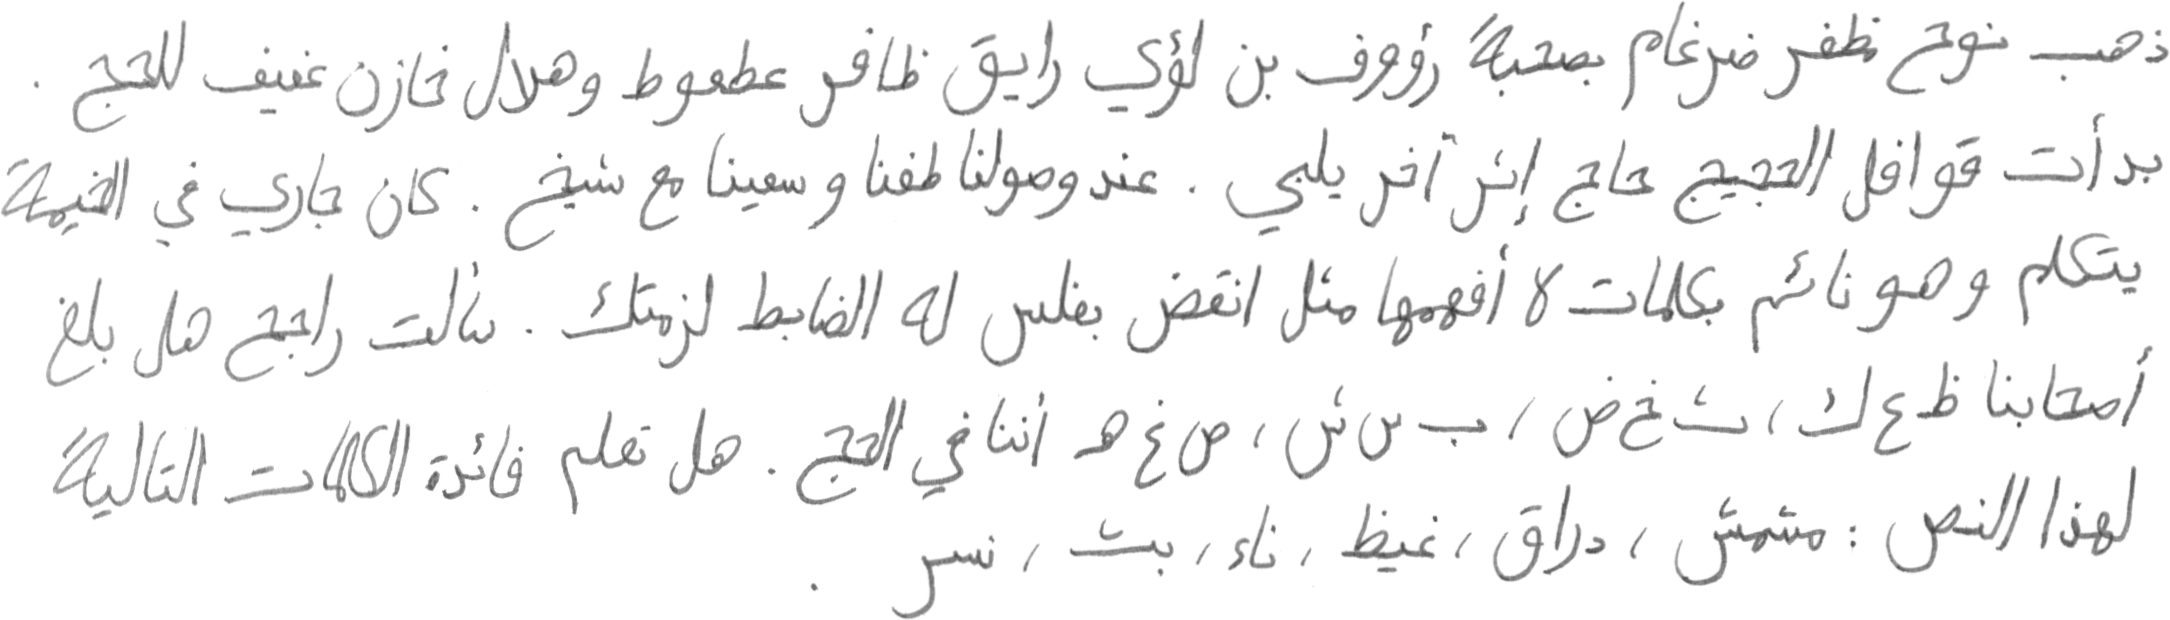 ذهب نوح مظفر ضرغام بصحبة رؤوف بن لؤي رايق ظافر عطعوط وهلال خازن عفيف للحج .
بدأت قوافل الحجيج حاج إثر آخر يلبي . عند وصولنا طفنا وسعينا مع شيخ . كان جاري في الخيمة
يتكلم وهو نائم بكلمات لا أفهمها مثل انقض بفلس له الضابط لزمتك . سألت راجح هل بلغ
أصحابنا ظ ع ك ، ث خ ض ، ب س ش ، ص غ هـ أننا في الحج . هل تعلم فائدة الكلمات التالية
لهذا النص : مشمش ، دراق ، غيظ ، ناء ، بث ، نسر .